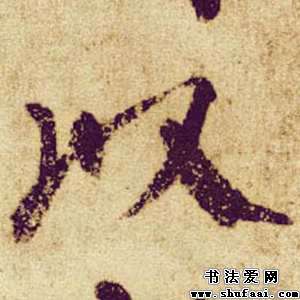 以
书法爱网
www.shufaai.com